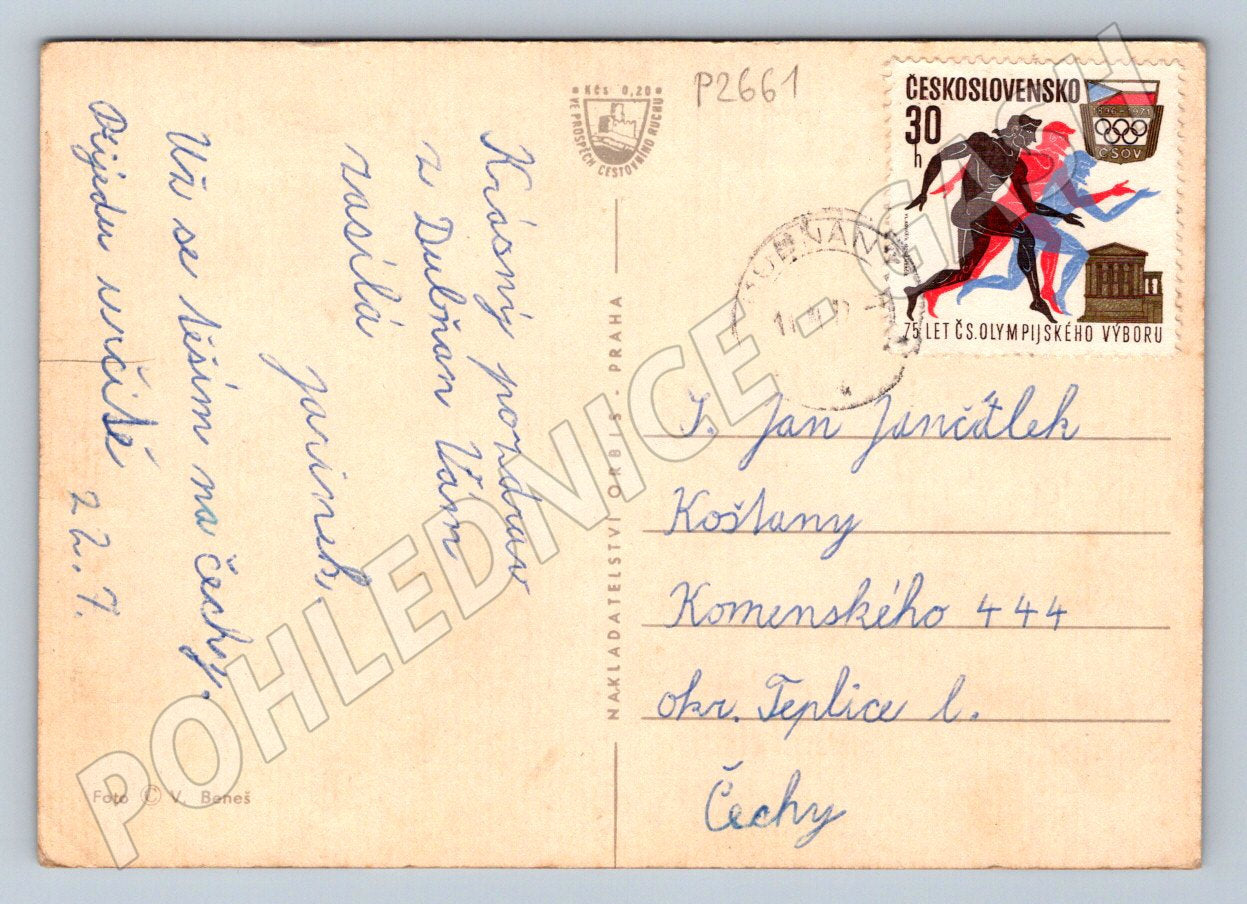 Krásný pozdrav
z Dubňan Vám
zasílá
Jarinek.
Už se těším na čechy.
Přijedu určitě
22.7.
P2661
Kčs 0,20
VE PROSPĚCH CESTOVNÍHO RUCHU
ČESKOSLOVENSKO
30
h
1896-1971
ČSOV
75 LET ČS. OLYMPIJSKÉHO VÝBORU
DUBŇANY
J. Jan Jančálek
Košťany
Komenského 444
okr. Teplice l.
Čechy
NAKLADATELSTVÍ ORBIS - PRAHA
Foto © V. Beneš
POHLEDNICE - GASH